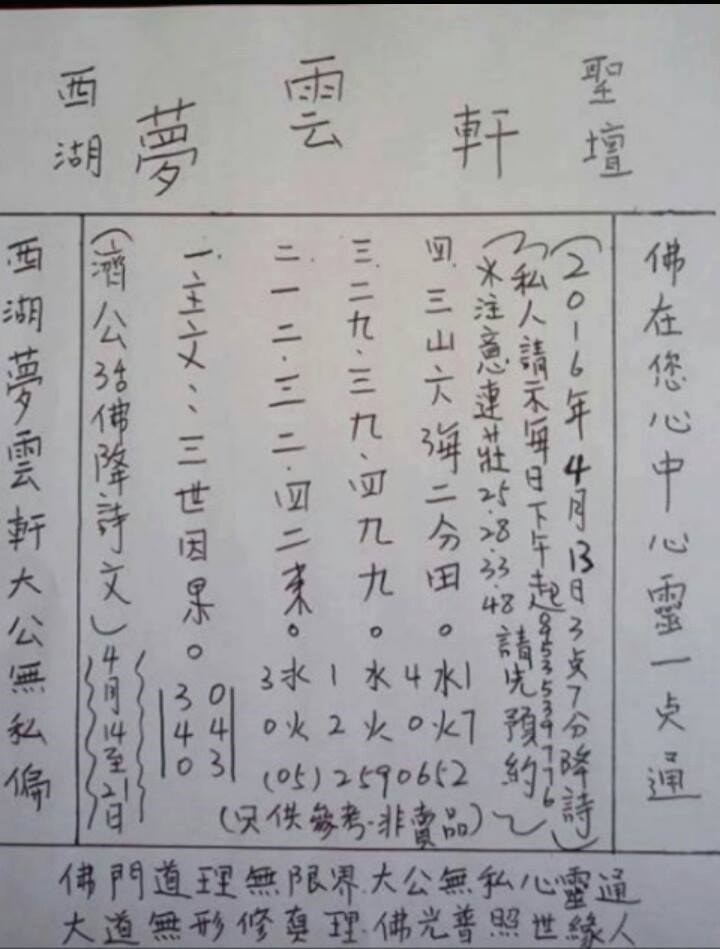 西湖 夢雲軒 聖壇
佛在您心中心靈一点通
(2016年4月13日3点7分降詩)
(私人請示每日下午起0953539776
※注意連莊25.28.33.48 請先預約)
四.三山六海二分田。
三.二九.三九.四九九。
二.一二.三二.四二来。
一.主文:三世因果。
(濟公活佛降詩文)
4月14至21日
西湖夢雲軒大公無私偏
30
44
03
3水1水4水1
0火2火0火7
(05)2590652
(只供參考.非賣品)
佛門道理無限界.大公無私心靈通
大道無形修真理.佛光普照世緣人